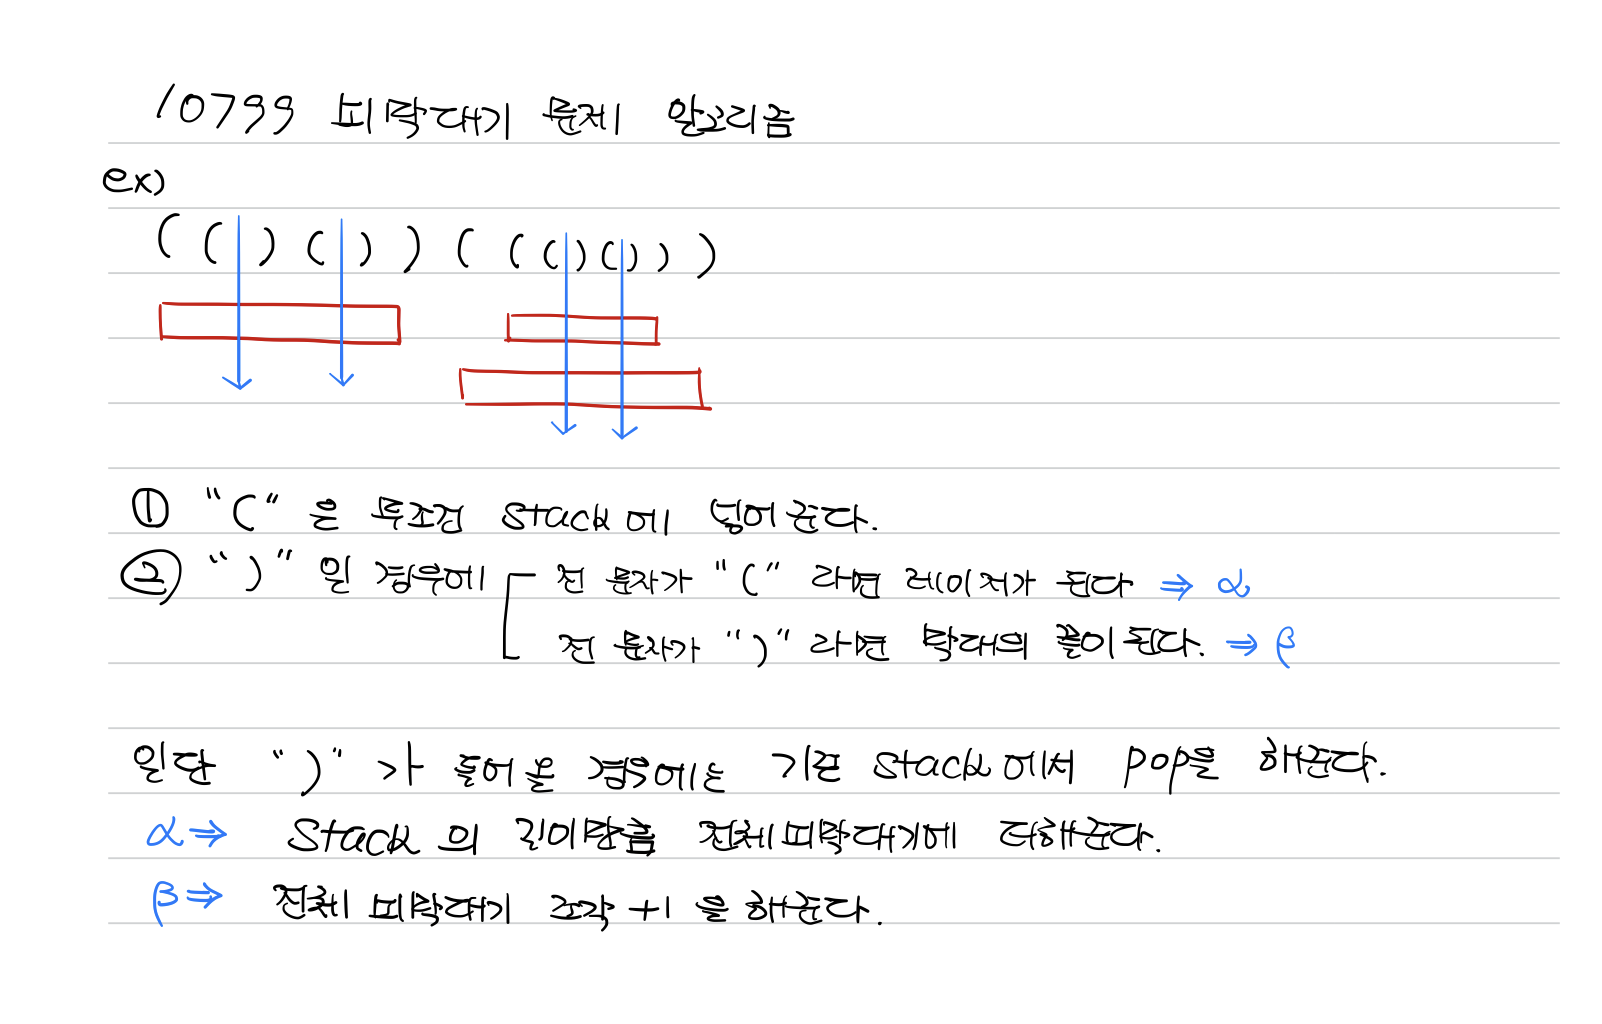 10799 쇠막대기 문제 알고리즘
ex)
( ( ) ( ) ) ( ( ( ) ( ) ) )
① "(" 은 무조건 stack에 넣어준다.
② ")" 일 경우에 전 문자가 "(" 라면 레이저가 된다 ⇒ α
전 문자가 ")" 라면 막대의 끝이 된다. ⇒ β
일단 ")" 가 들어올 경우에는 기존 stack에서 pop을 해준다.
α ⇒ Stack의 길이만큼 전체 쇠막대기에 더해준다.
β ⇒ 전체 쇠막대기 조각 +1 을 해준다.